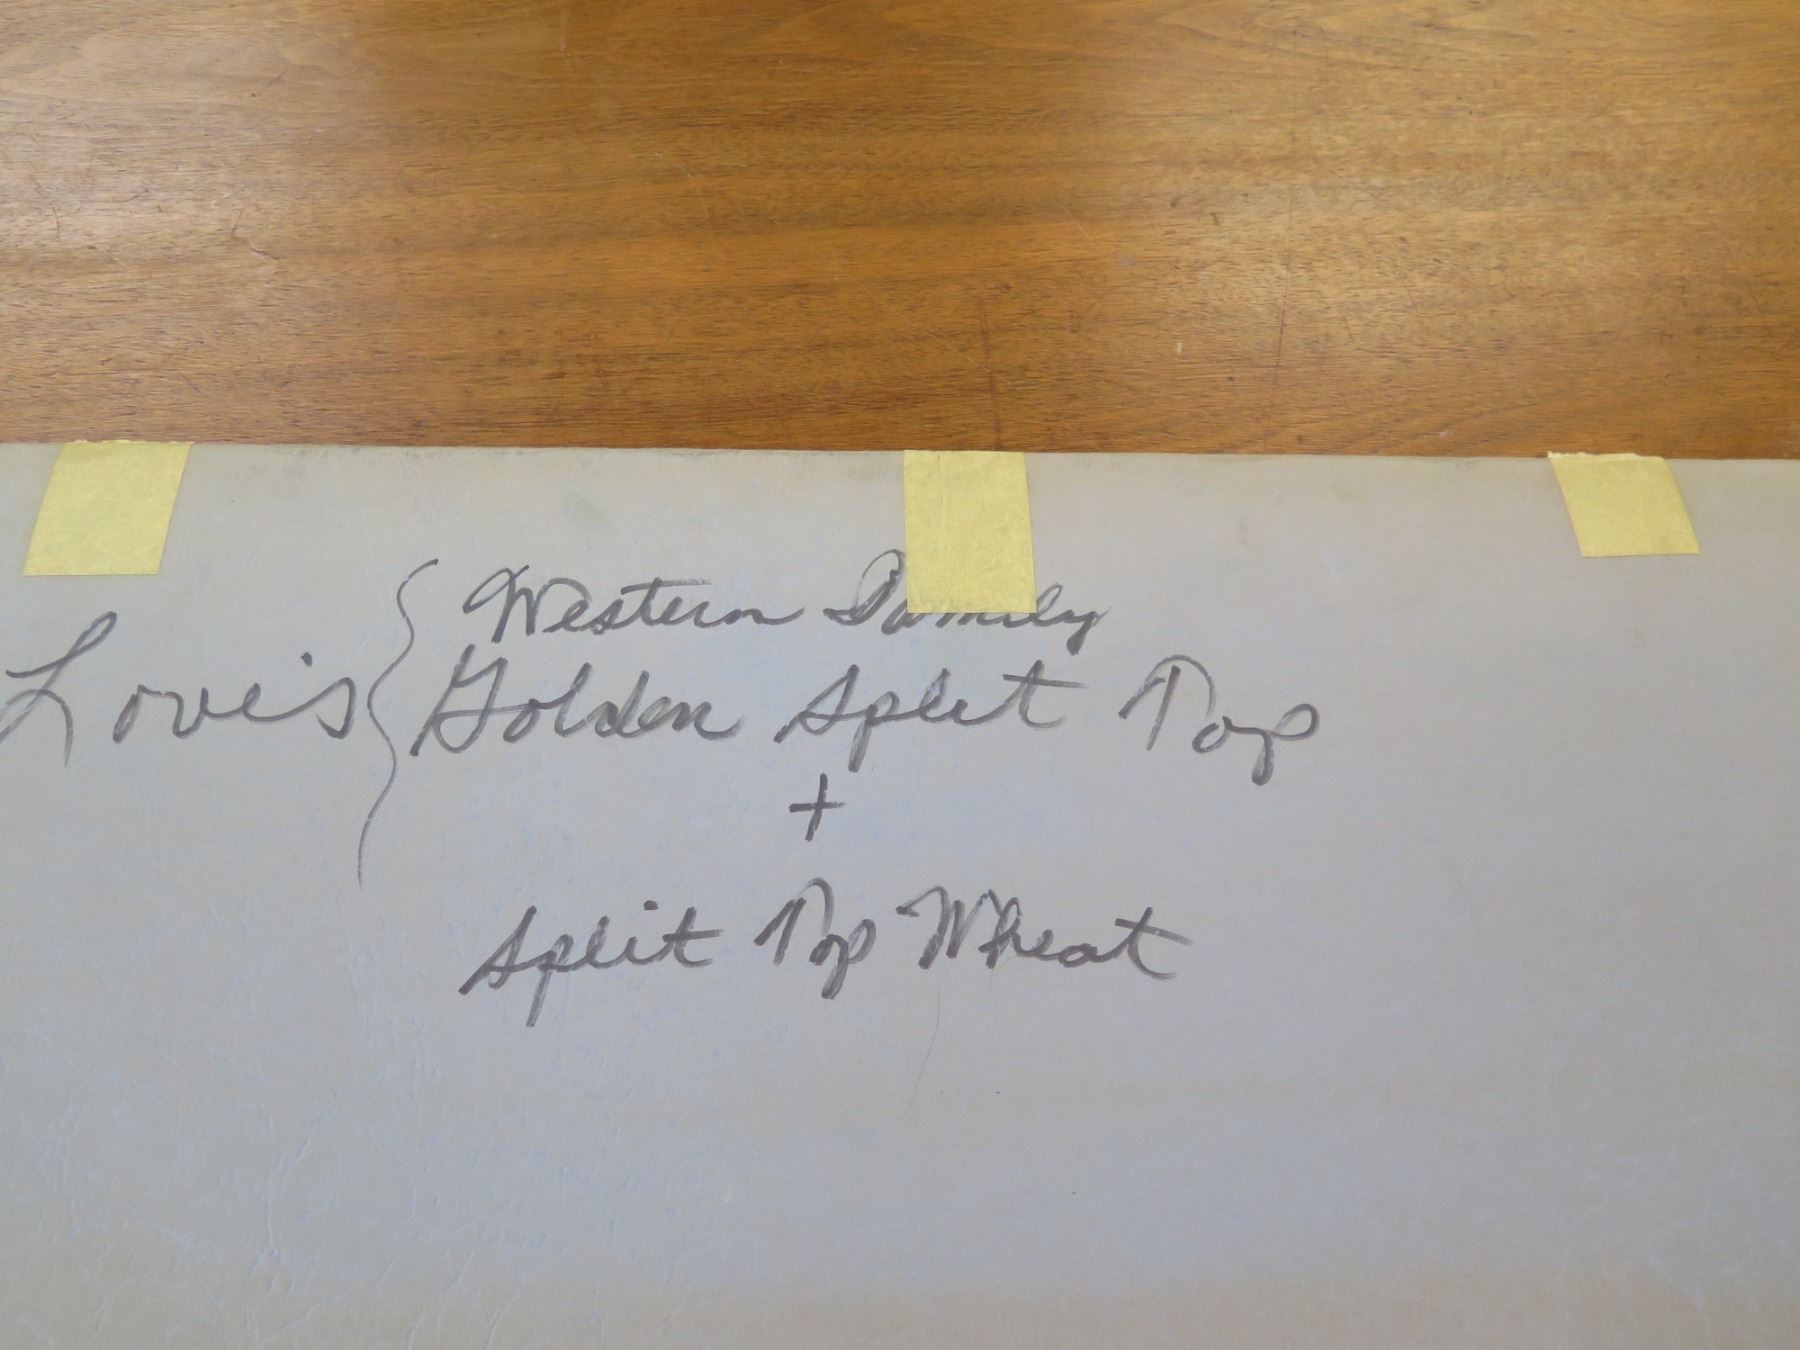 Love's { Western Family
Golden Split Top
+
Split Top Wheat